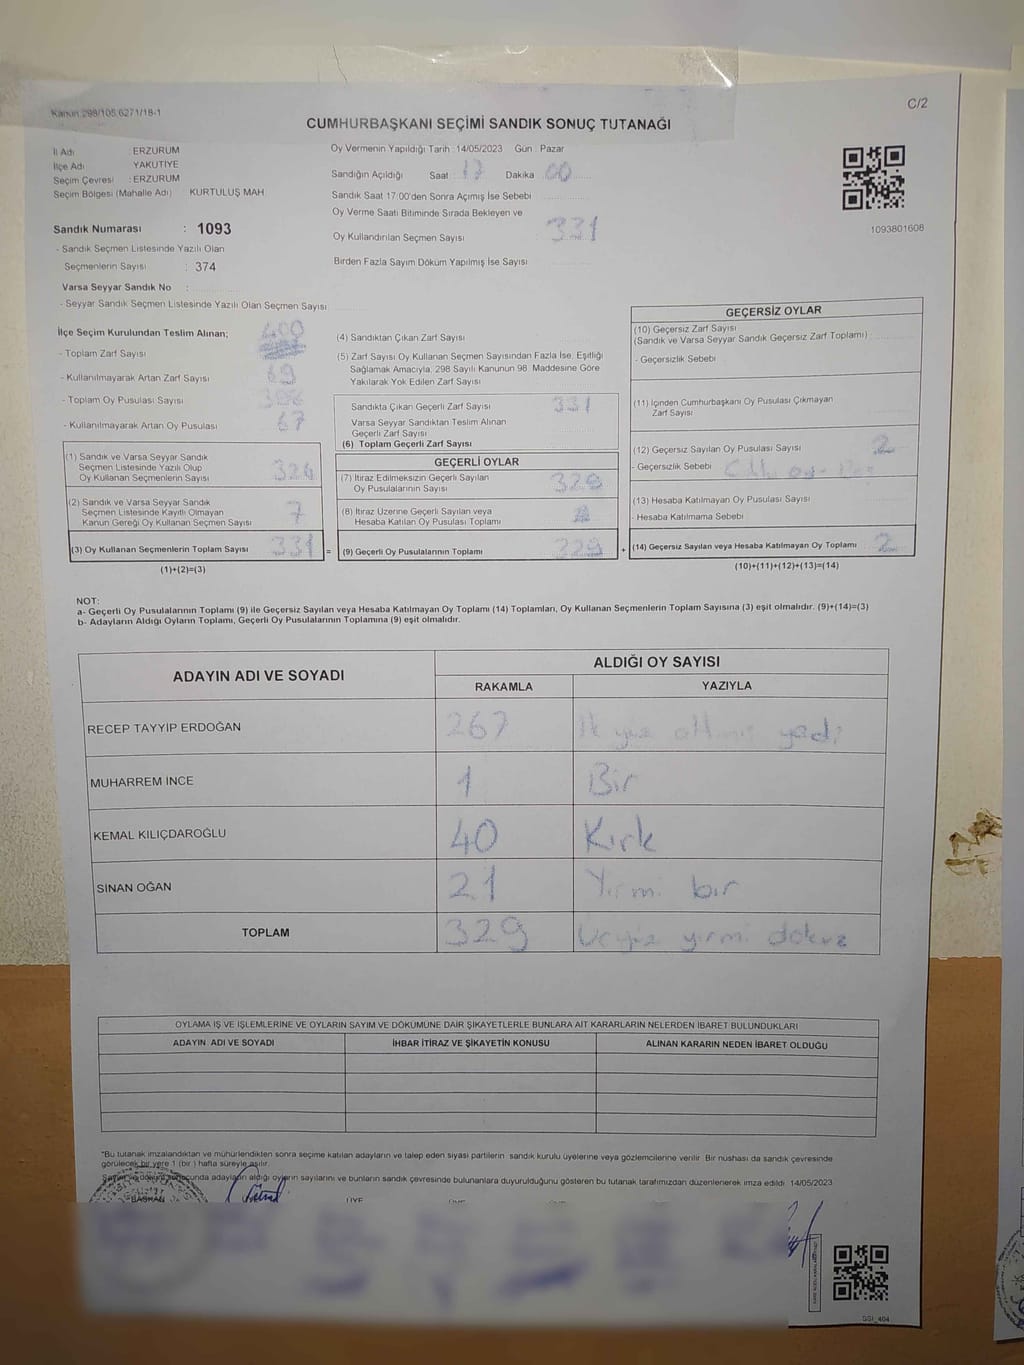 Kanun 298/105,6271/18-1
C/2
CUMHURBAŞKANI SEÇİMİ SANDIK SONUÇ TUTANAĞI
İl Adı ERZURUM
İlçe Adı YAKUTİYE
Seçim Çevresi : ERZURUM
Seçim Bölgesi (Mahalle Adı) KURTULUŞ MAH
Sandık Numarası : 1093
- Sandık Seçmen Listesinde Yazılı Olan
Seçmenlerin Sayısı : 374
Varsa Seyyar Sandık No :
- Seyyar Sandık Seçmen Listesinde Yazılı Olan Seçmen Sayısı
Oy Vermenin Yapıldığı Tarih :14/05/2023 Gün : Pazar
Sandığın Açıldığı Saat : 17 Dakika : 00
Sandık Saat 17:00'den Sonra Açımış İse Sebebi
Oy Verme Saati Bitiminde Sırada Bekleyen ve
Oy Kullandırılan Seçmen Sayısı : 331
Birden Fazla Sayım Döküm Yapılmış İse Sayısı
1093801608
İlçe Seçim Kurulundan Teslim Alınan; 400
- Toplam Zarf Sayısı
- Kullanılmayarak Artan Zarf Sayısı 69
- Toplam Oy Pusulası Sayısı 398
- Kullanılmayarak Artan Oy Pusulası 67
(1) Sandık ve Varsa Seyyar Sandık
Seçmen Listesinde Yazılı Olup
Oy Kullanan Seçmenlerin Sayısı 324
(2) Sandık ve Varsa Seyyar Sandık
Seçmen Listesinde Kayıtlı Olmayan
Kanun Gereği Oy Kullanan Seçmen Sayısı 7
(3) Oy Kullanan Seçmenlerin Toplam Sayısı 331 =
(1)+(2)=(3)
(4) Sandıktan Çıkan Zarf Sayısı
(5) Zarf Sayısı Oy Kullanan Seçmen Sayısından Fazla İse, Eşitliği
Sağlamak Amacıyla, 298 Sayılı Kanunun 98. Maddesine Göre
Yakılarak Yok Edilen Zarf Sayısı
Sandıkta Çıkan Geçerli Zarf Sayısı 331
Varsa Seyyar Sandıktan Teslim Alınan
Geçerli Zarf Sayısı
(6) Toplam Geçerli Zarf Sayısı
GEÇERLİ OYLAR
(7) İtiraz Edilmeksizin Geçerli Sayılan
Oy Pusulalarının Sayısı 329
(8) İtiraz Üzerine Geçerli Sayılan veya
Hesaba Katılan Oy Pusulası Toplamı
(9) Geçerli Oy Pusulalarının Toplamı 329 +
GEÇERSİZ OYLAR
(10) Geçersiz Zarf Sayısı
(Sandık ve Varsa Seyyar Sandık Geçersiz Zarf Toplamı)
- Geçersizlik Sebebi
(11) İçinden Cumhurbaşkanı Oy Pusulası Çıkmayan
Zarf Sayısı
(12) Geçersiz Sayılan Oy Pusulası Sayısı 2
- Geçersizlik Sebebi
(13) Hesaba Katılmayan Oy Pusulası Sayısı
- Hesaba Katılmama Sebebi
(14) Geçersiz Sayılan veya Hesaba Katılmayan Oy Toplamı 2
(10)+(11)+(12)+(13)=(14)
NOT:
a- Geçerli Oy Pusulalarının Toplamı (9) ile Geçersiz Sayılan veya Hesaba Katılmayan Oy Toplamı (14) Toplamları, Oy Kullanan Seçmenlerin Toplam Sayısına (3) eşit olmalıdır. (9)+(14)=(3)
b- Adayların Aldığı Oyların Toplamı, Geçerli Oy Pusulalarının Toplamına (9) eşit olmalıdır.
ADAYIN ADI VE SOYADI ALDIĞI OY SAYISI
RAKAMLA YAZIYLA
RECEP TAYYİP ERDOĞAN 267 İki yüz altmış yedi
MUHARREM İNCE 1 Bir
KEMAL KILIÇDAROĞLU 40 Kırk
SİNAN OĞAN 21 Yirmi bir
TOPLAM 329 Üçyüz yirmi dokuz
OYLAMA İŞ VE İŞLEMLERİNE VE OYLARIN SAYIM VE DÖKÜMÜNE DAİR ŞİKAYETLERLE BUNLARA AİT KARARLARIN NELERDEN İBARET BULUNDUKLARI
ADAYIN ADI VE SOYADI İHBAR İTİRAZ VE ŞİKAYETİN KONUSU ALINAN KARARIN NEDEN İBARET OLDUĞU
*Bu tutanak imzalandıktan ve mühürlendikten sonra seçime katılan adayların ve talep eden siyasi partilerin sandık kurulu üyelerine veya gözlemcilerine verilir. Bir nüshası da sandık çevresinde
görülecek bir yere 1 (bir ) hafta süreyle asılır.
Sayım ve döküm sonucunda adayların aldığı oyların sayılarını ve bunların sandık çevresinde bulunanlara duyurulduğunu gösteren bu tutanak tarafımızdan düzenlenerek imza edildi. 14/05/2023
BAŞKAN ÜYE
SSI_404